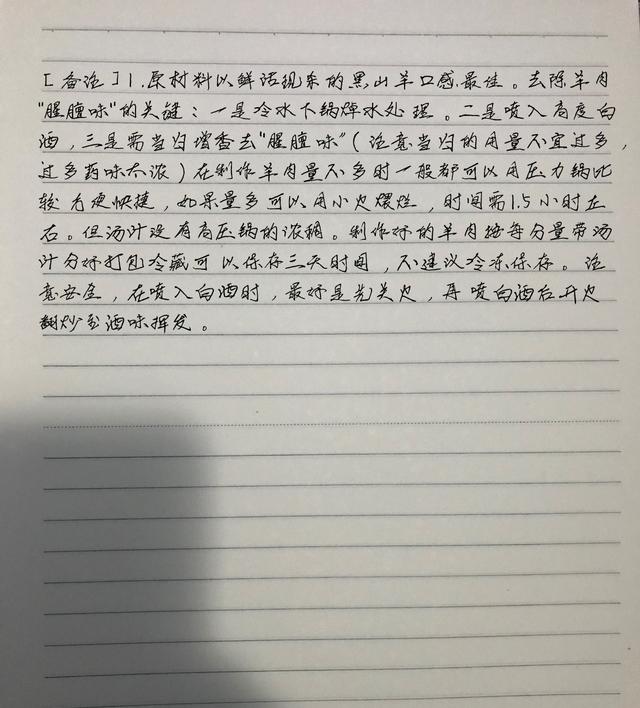 [备注]1.原材料以鲜活现杀的黑山羊口感最佳。去除羊肉
"腥膻味"的关键:一是冷水下锅焯水处理。二是喷入高度白
酒,三是需当归增香去"腥膻味"(注意当归的用量不宜过多,
过多药味太浓)在制作羊肉量不多时一般都可以用压力锅比
较方便快捷,如果量多可以用小火煨烂,时间需1.5小时左
右。但汤汁没有高压锅的浓稠。制作好的羊肉按每分量带汤
汁分好打包冷藏可以保存三天时间,不建议冷冻保存。注
意安全,在喷入白酒时,最好是先关火,再喷白酒后开火
翻炒至酒味挥发。